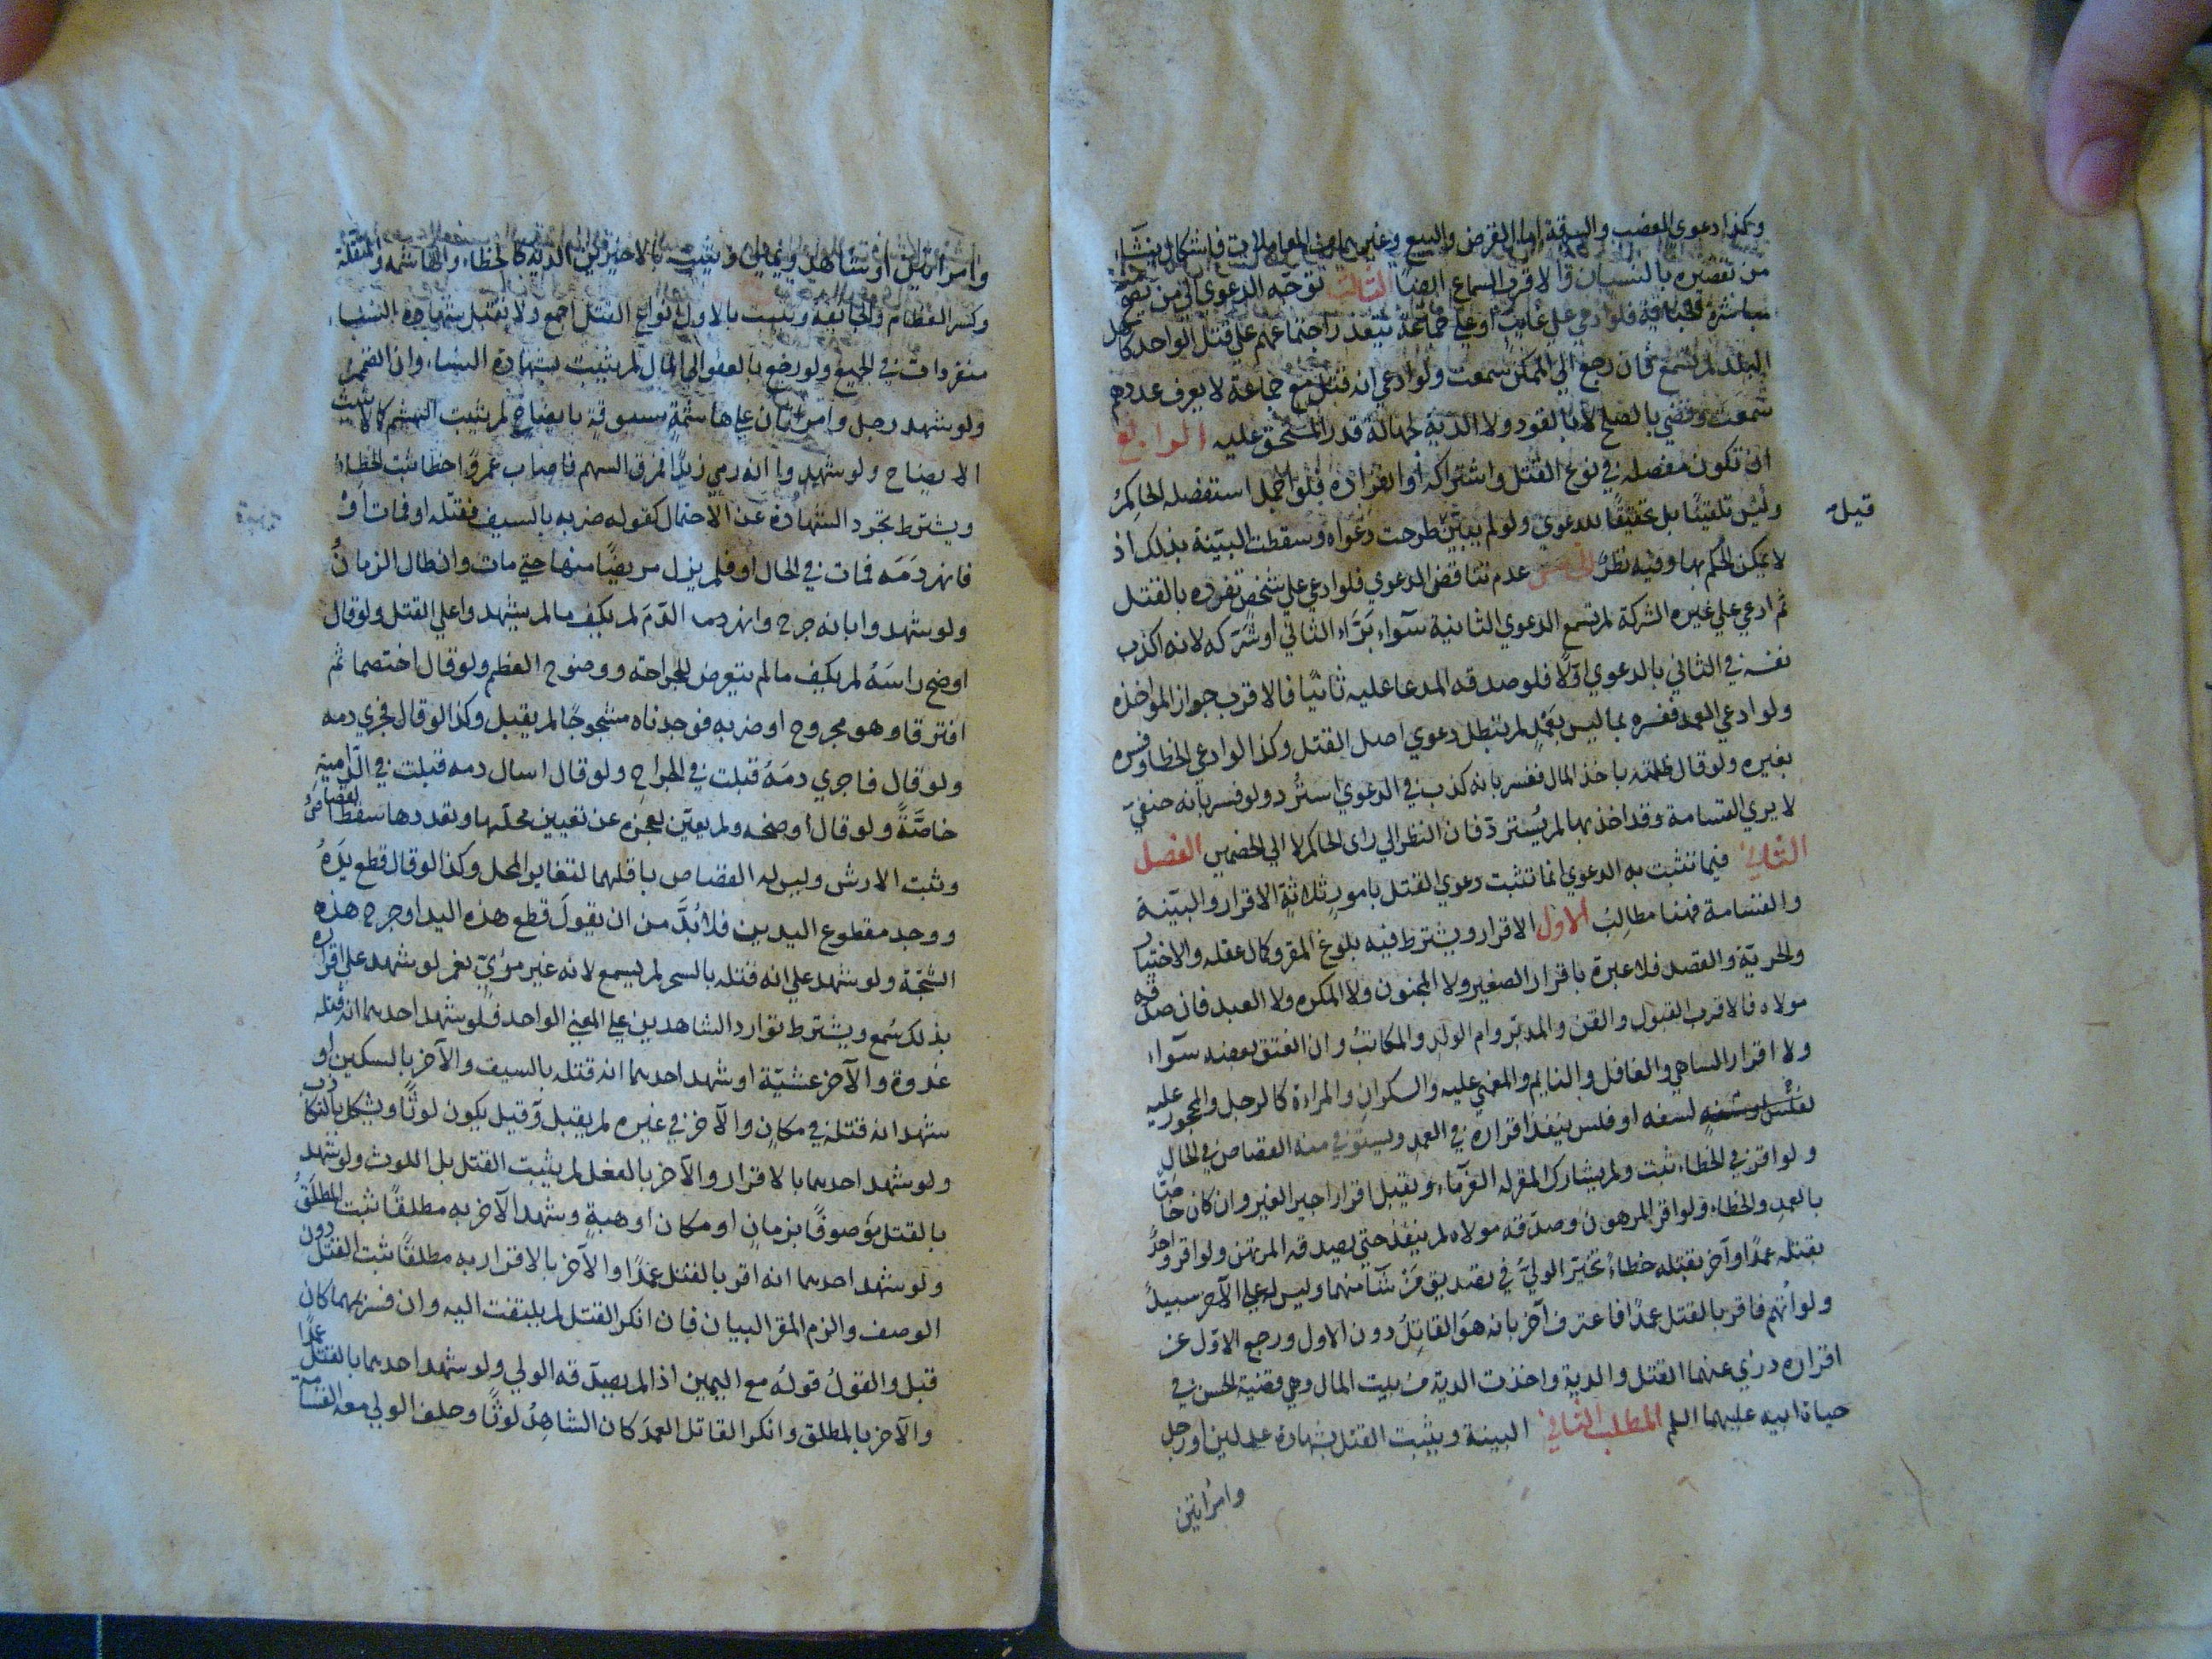 وكذا دعوي الغصب والسرقة اما القرض والبيع وغيرهما من المعاملات فاشكال ينشاء
من تقصيره بالنسيان والاقرب السماع ايضا الثالث توجه الدعوي الي من يصح
مباشرة الجناية فلو ادعي علي غايب او علي جماعة يتعذر اجتماعهم علي قتل الواحد كاهل
البلد لم تسمع فان رجع الي الممكن سمعت ولو ادعي انه قتل مع جماعة لا يعرف عددهم
سمعت وقضي بالصلح لا بالقود ولا الدية لجهالة قدر المستحق عليه الرابع
ان تكون مفصله في نوع القتل واشتراكه او انفراده فلو اجمل استفصله الحاكم
قيل
وليس تلقينًا بل تحقيقًا للدعوي ولو لم يبيّن طرحت دعواه وسقطت البيّنة بذلك اذ
لا يمكن الحكم بها وفيه نظر الخامس عدم تناقض الدعوي فلو ادعي علي شخص تفرده بالقتل
ثم ادعي علي غيره الشركة لم تسمع الدعوي الثانية سوآء برّاء الثاني او شرّكه لانه اكذب
نفسه في الثاني بالدعوي اوّلًا فلو صدقه المدعا عليه ثانيًا فالاقرب جواز المواخذه
ولو ادعي العمد ففسره بما ليس بعَمْدٍ لم تبطل دعوي اصل القتل وكذا لو ادعي الخطا وفسره
بغيره ولو قال ظلمته باخذ المال ففسر بانه كذب في الدعوي استُرد ولو فسر بانه حنفيّ
لا يري القسامة وقد اخذ بها لم يُسترد فان النظر الي راى الحاكم لا الي الخصمين الفصل
الثاني فيما تثبت به الدعوي انما تثبت دعوي القتل بامورٍ ثلاثةٍ الاقرار والبيّنة
والقسامة فهنا مطالب الاول الاقرار ويشترط فيه بلوغ المقر وكمال عقله والاختيار
والحريّة والقصد فلا عبرة باقرار الصغير ولا المجنون ولا المكره ولا العبد فان صدّقه
مولاه فالاقرب القبول والقن والمدبّر وام الولد والمكاتب وان انعتق بعضه سوآء
ولا اقرار الساهي والغافل والنايم والمغمي عليه والسكران والمراءة كالرجل والمحجور عليه
لسفه او فلس ينفذ اقراره في العمد ويستوفي منه القصاص في الحال
ولو اقر في الخطاء ثبت ولم يشارك المقر له الغرمآء ويقبل اقرار اجير الغير وان كان خاصًّا
بالعمدِ والخطاء ولو اقر المرهون وصدّقه مولاه لم ينفذ حتي يصدقه المرتهن ولو اقر واحدٌ
بقتله عمدًا وآخر بقتله خطاءً تخيّر الوليّ في تصديق مَنْ شآ منهما وليس له علي الآخر سبيل
ولو اتهم فاقر بالقتل عمدًا فاعترف آخر بانه هو القاتل دون الاول ورجع الاوّل عن
اقراره درئ عنهما القتل والدية واخذت الدية من بيت المال وهي قضية الحسن في
حياة ابيه عليهما السلم المطلب الثاني البينة ويثبت القتل بشهادة عدلين او رجل
وامراتين
وامراتين او شاهد ويمين ويثبت بالاخيرين الدية كالخطاء والهاشمه والمنقلة
وكسر العظام والجايفة ويثبت بالاول انواع القتل اجمع ولا يقبل شهادة النساء
منفردات في الجميع ولو رجع بالعفو الي المال لم يثبت بشهادة النساء وان انضممن
ولو شهد رجل وامراتان علي هاشمةٍ مسبوقةٍ بايضاح لم يثبت الهشم كما لا يثبت
الايضاح ولو شهدوا انه رمي زيدًا فمرق السهم فاصاب عمروًا خطا ثبت الخطاء
ويشترط تجرد الشهادة عن الاحتمال كقوله ضربه بالسيف فقتله او فمات او
فانهر دَمَه فمات في الحال او فلم يزل مريضًا منها حتي مات وان طال الزمان
ولو شهدوا بانه جرح وانهر دما الدّم لم يكف ما لم يشهدوا علي القتل ولو قال
اوضح راسَهُ لم يكف ما لم يتعرض للجراحة ووضوح العظم ولو قال اختصما ثم
افترقا وهو مجروح او ضربه فوجدناه مشجوجًا لم يقبل وكذا لو قال فجري دمه
ولو قال فاجري دمَهُ قبلت في الجراح ولو قال اسال دمه قبلت في الدّاميةِ
خاصّةً ولو قال أوضحه ولم يعيّن لعجزه عن تعيين محلّها وتعددها سقط القصاصُ
وثبت الارش وليس له القصاص باقلهما لتغاير المحل وكذا لو قال قطع يَدَهُ
ووجد مقطوع اليدين فلا بُدَّ من ان يقولَ قطع هذه اليد او جرح هذه
الشجّة ولو شهد علي انه قتله بالسحر لم يسمع لانه غير مرْئيّ نعم لو شهد علي اقراره
بذلك سُمع ويشترط توارد الشاهدين علي المعني الواحد فلو شهد احدهما انه قتله
غدوة والآخر عشيّة او شهد احدهما انه قتله بالسيف والآخر بالسكين او
شهد انه قتله في مكانٍ والآخر في غيره لم يقبل وقيل يكون لوثًا ويشكل بالتكاذب
ولو شهد احدهما بالاقرار والآخر بالفعل لم يثبت القتل بل اللوث ولو شهد
بالقتل موصوفًا بزمانٍ او مكان او هيةٍ وشهد الآخر به مطلقًا ثبت المطلَقُ
ولو شهد احدهما انه اقر بالقتل عمدًا والآخر بالاقرار به مطلقًا ثبت القتل دون
الوصف والزم المقر البيان فان انكر القتل لم يلتفت اليه وان فسر بهما كان
قبل والقولُ قولهُ مع اليمين اذا لم يصدّقه الولي ولو شهد احدهما بالقتل عمدًا
والآخر بالمطلق وانكر القاتل العمدَ كان الشاهِدُ لوثًا وحلف الولي معه القسامة